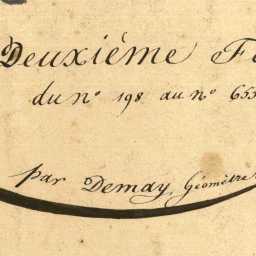 Deuxième F
du n° 198 au n° 655
par Demay, Géomètre